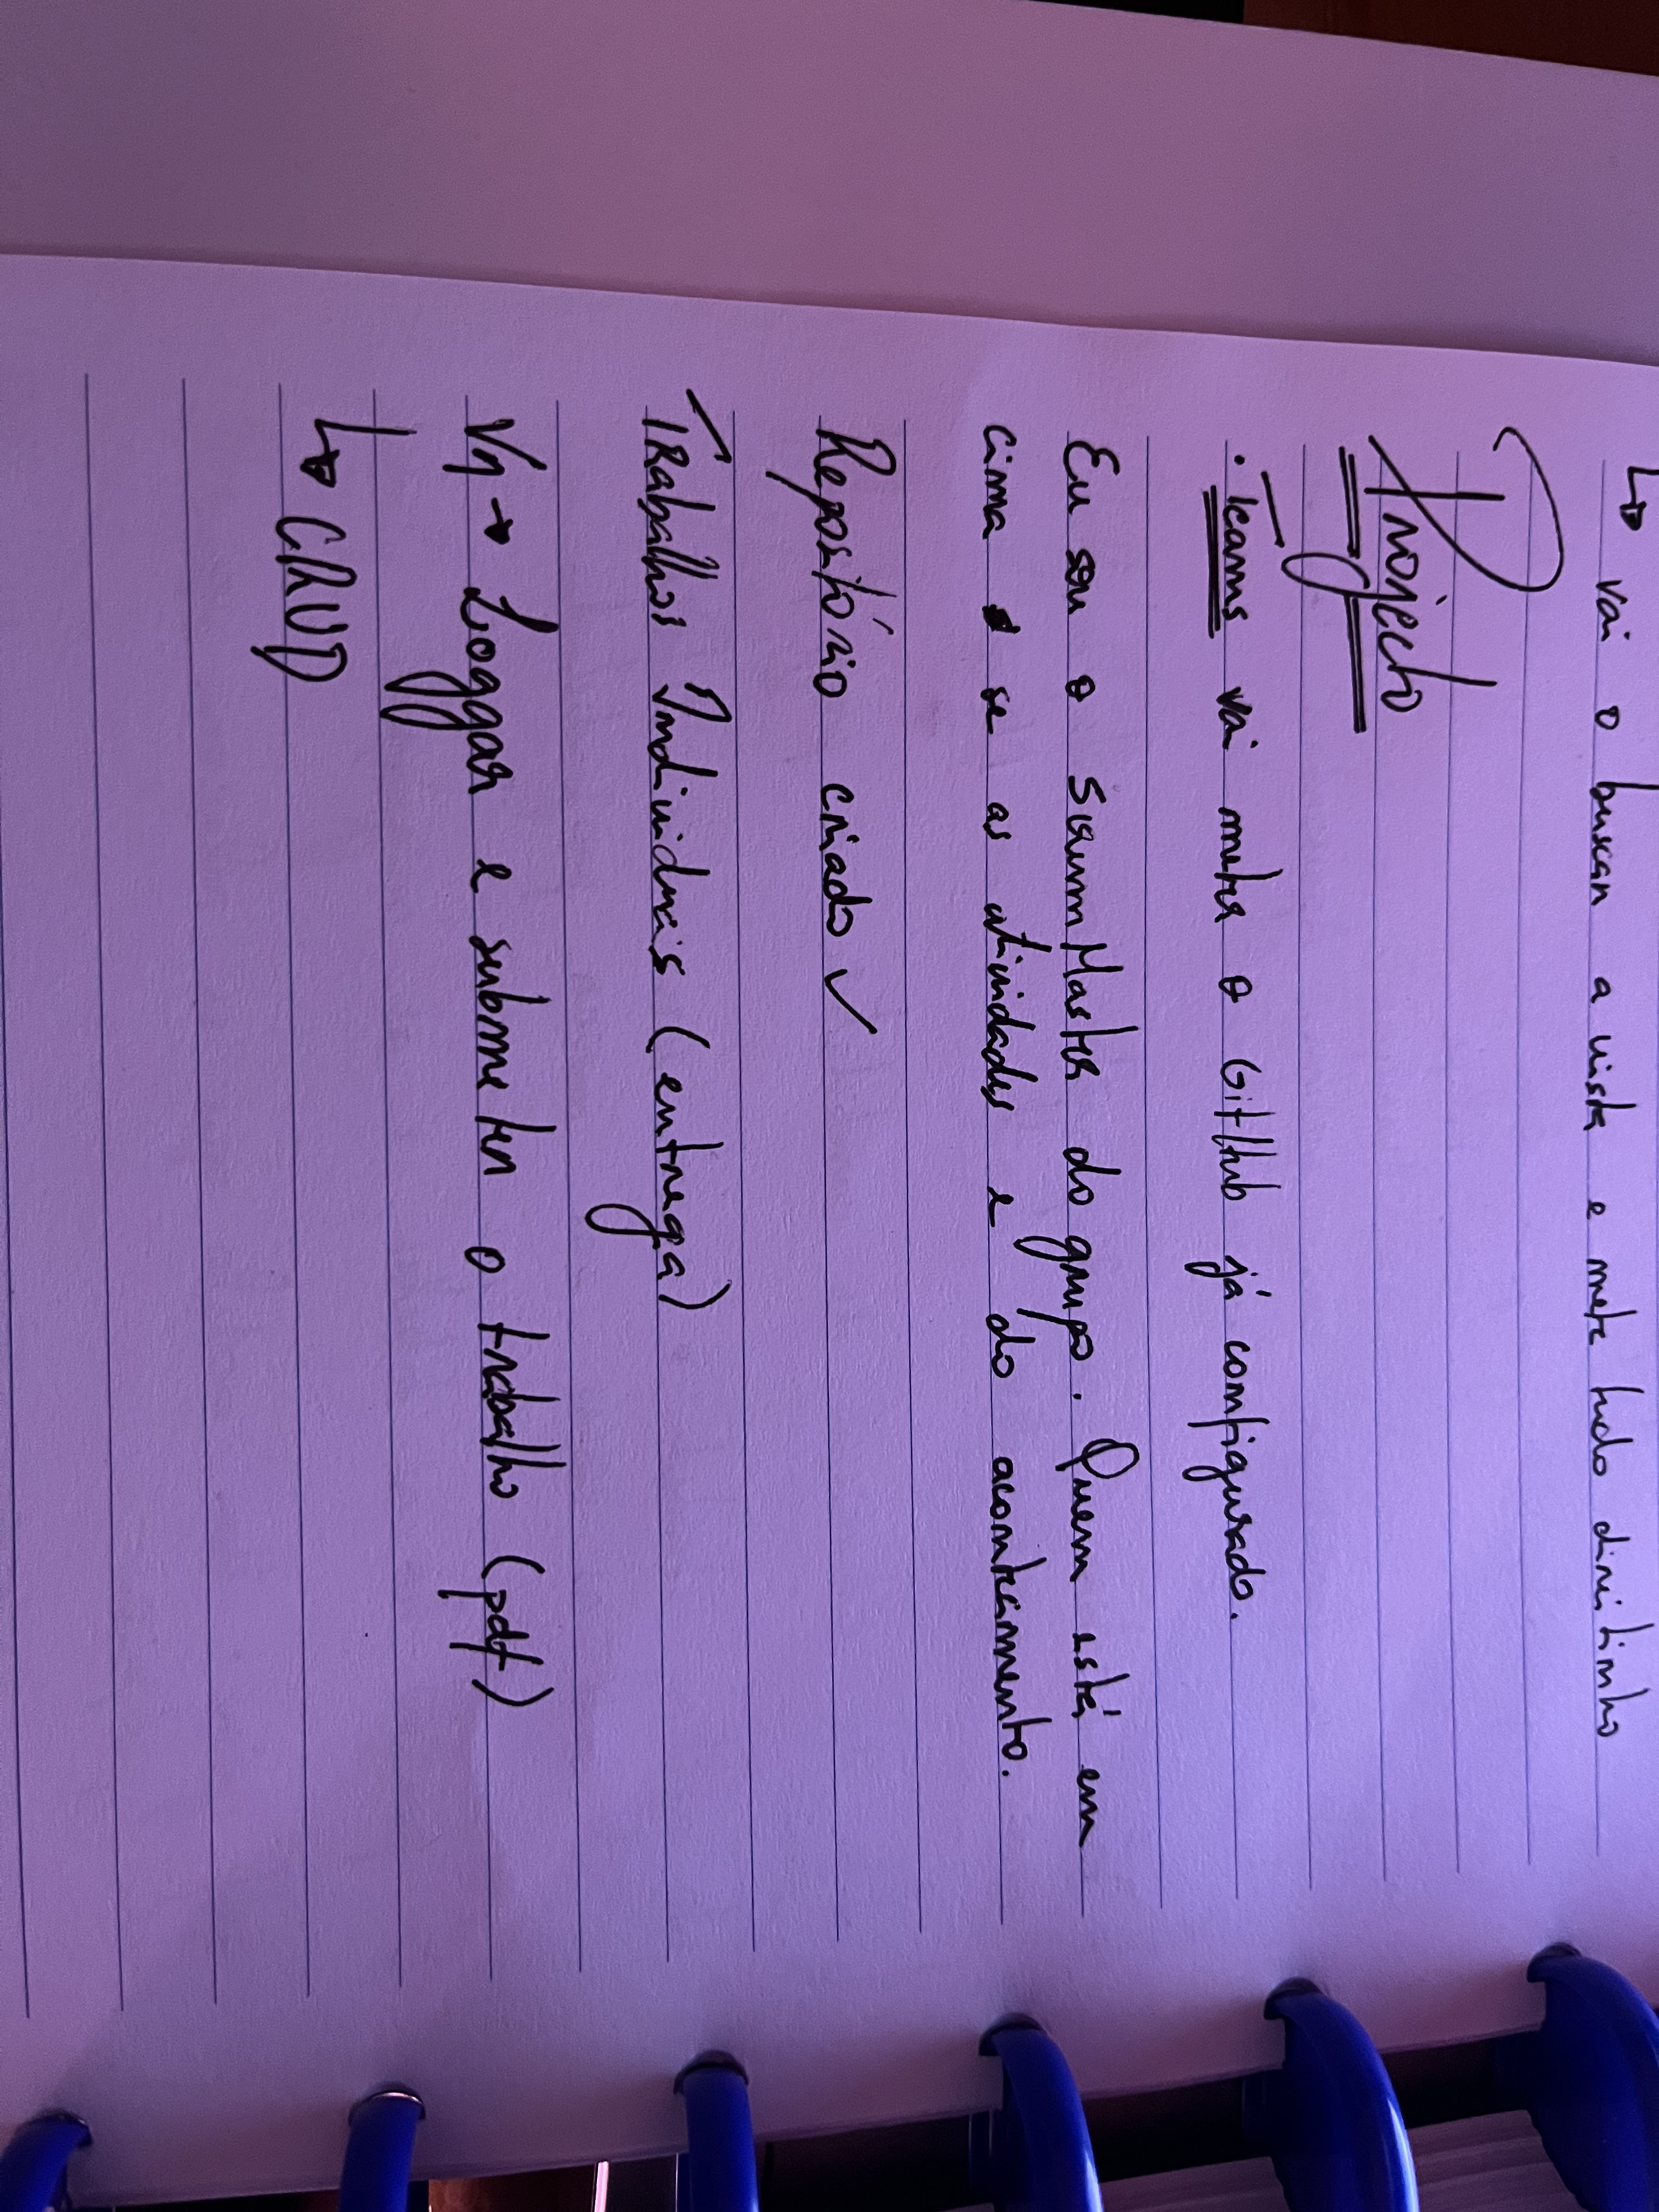 ↳ vai o buscar a vista e mete tudo direitinho
Projecto
• Teams vai meter o GitHub já configurado.
Eu sou o ScrumMaster do grupo. Quem está em
cima se as atividades e do acontecimento.
Repositório criado ✓
Trabalhos Individuais (entrega)
→ Loggar e submeter o trabalho (pdf)
↳ CRUD